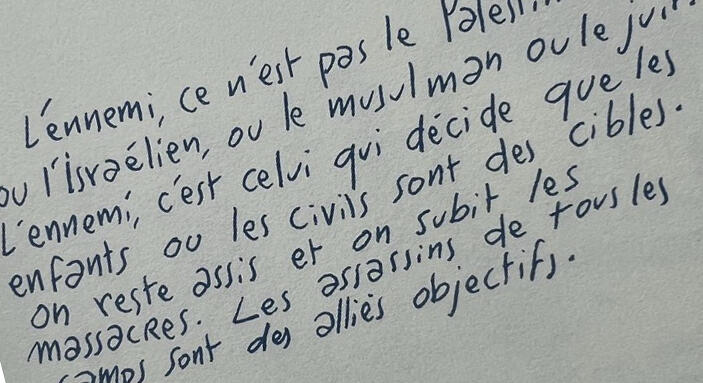 L'ennemi, ce n'est pas le
ou l'israélien, ou le musulman ou le juif.
L'ennemi, c'est celui qui décide que les
enfants ou les civils sont des cibles.
on reste assis et on subit les
massacres. Les assassins de tous les
camps sont des alliés objectifs.